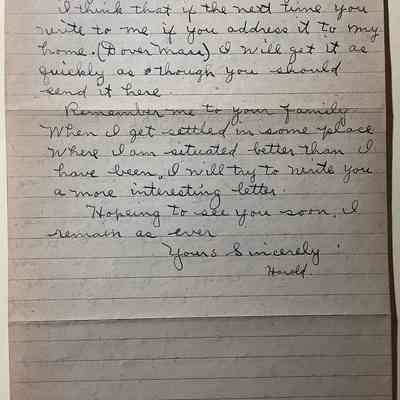 I think that if the next time you
write to me if you address it to my
home. (Dover Mass) I will get it as
quickly as though you should
send it here.
Remember me to your family.
When I get settled in some place
where I am situated better than I
have been, I will try to write you
a more interesting letter.
Hopeing to see you soon, I
remain as ever
Yours Sincerely
Harold.